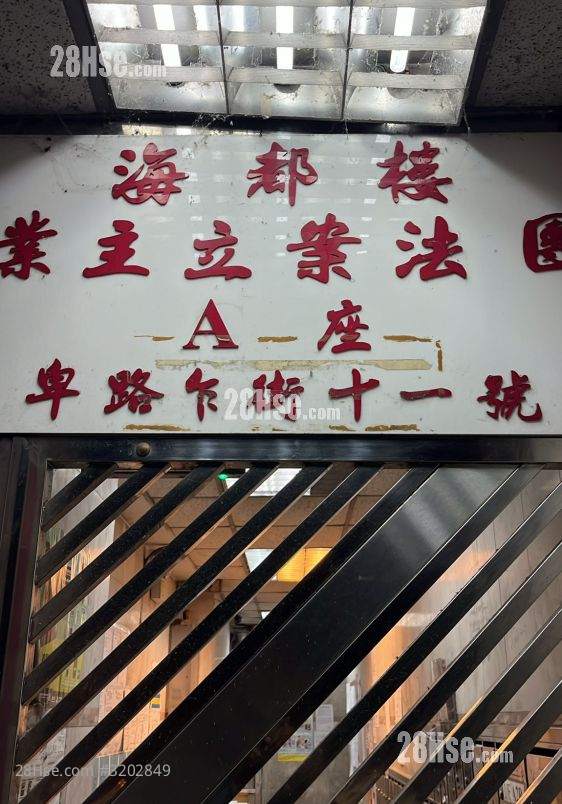 28Hse.com
海都樓
業主立案法團
A座
卑路乍街十一號
28Hse.com
28Hse.com
28Hse.com #3202849